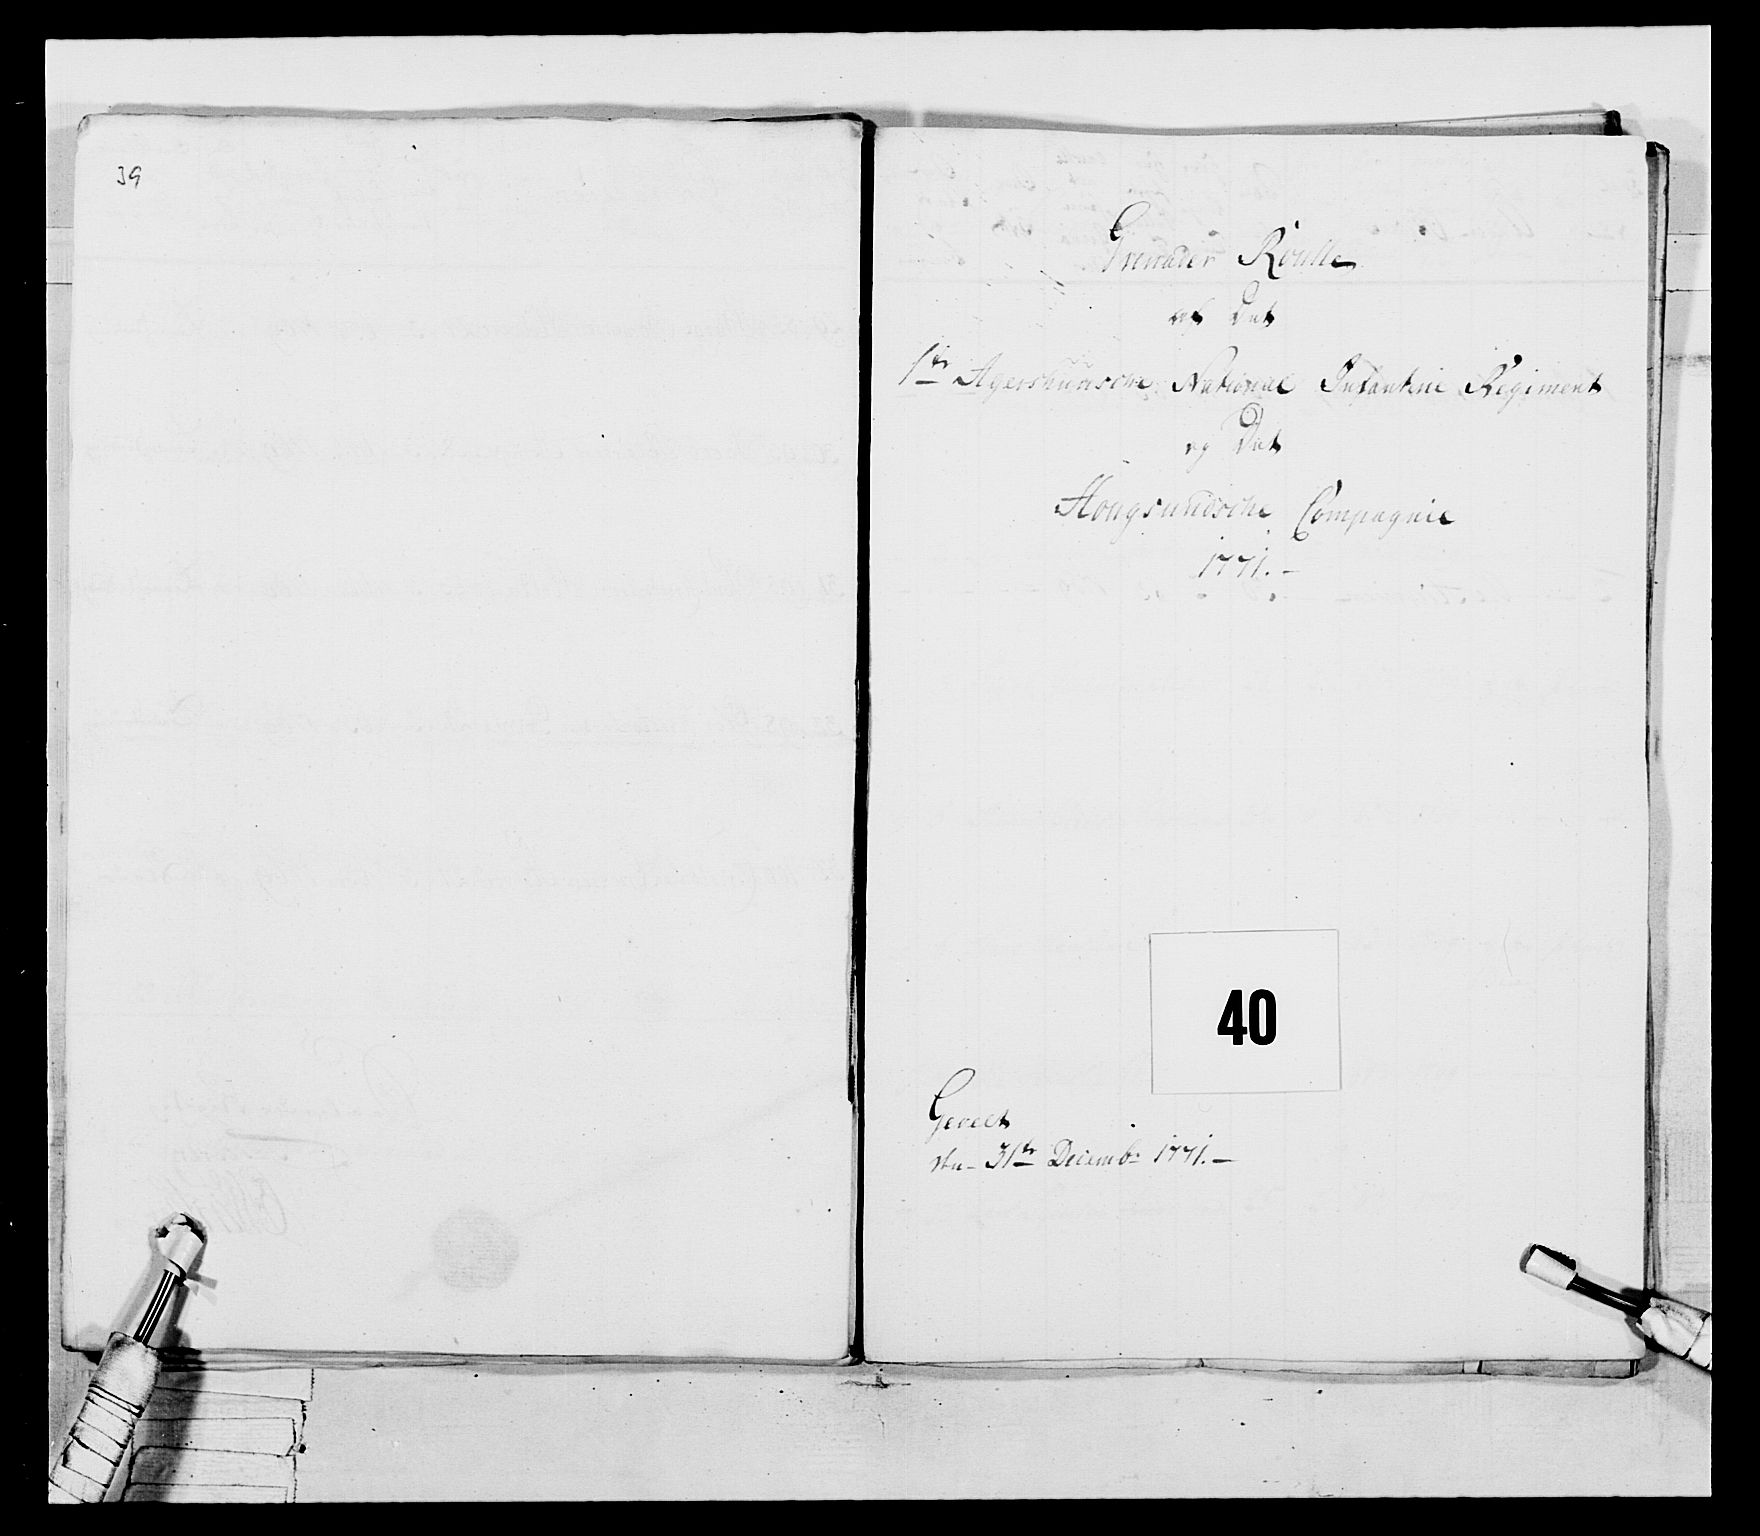 39
Grenader Roulle
af Det
1te Agershuusche National Infanterie Regiment
og Det
Hougsundsche Compagnie
1771.-
40
Geved
dn- 31te Decembr 1771.-